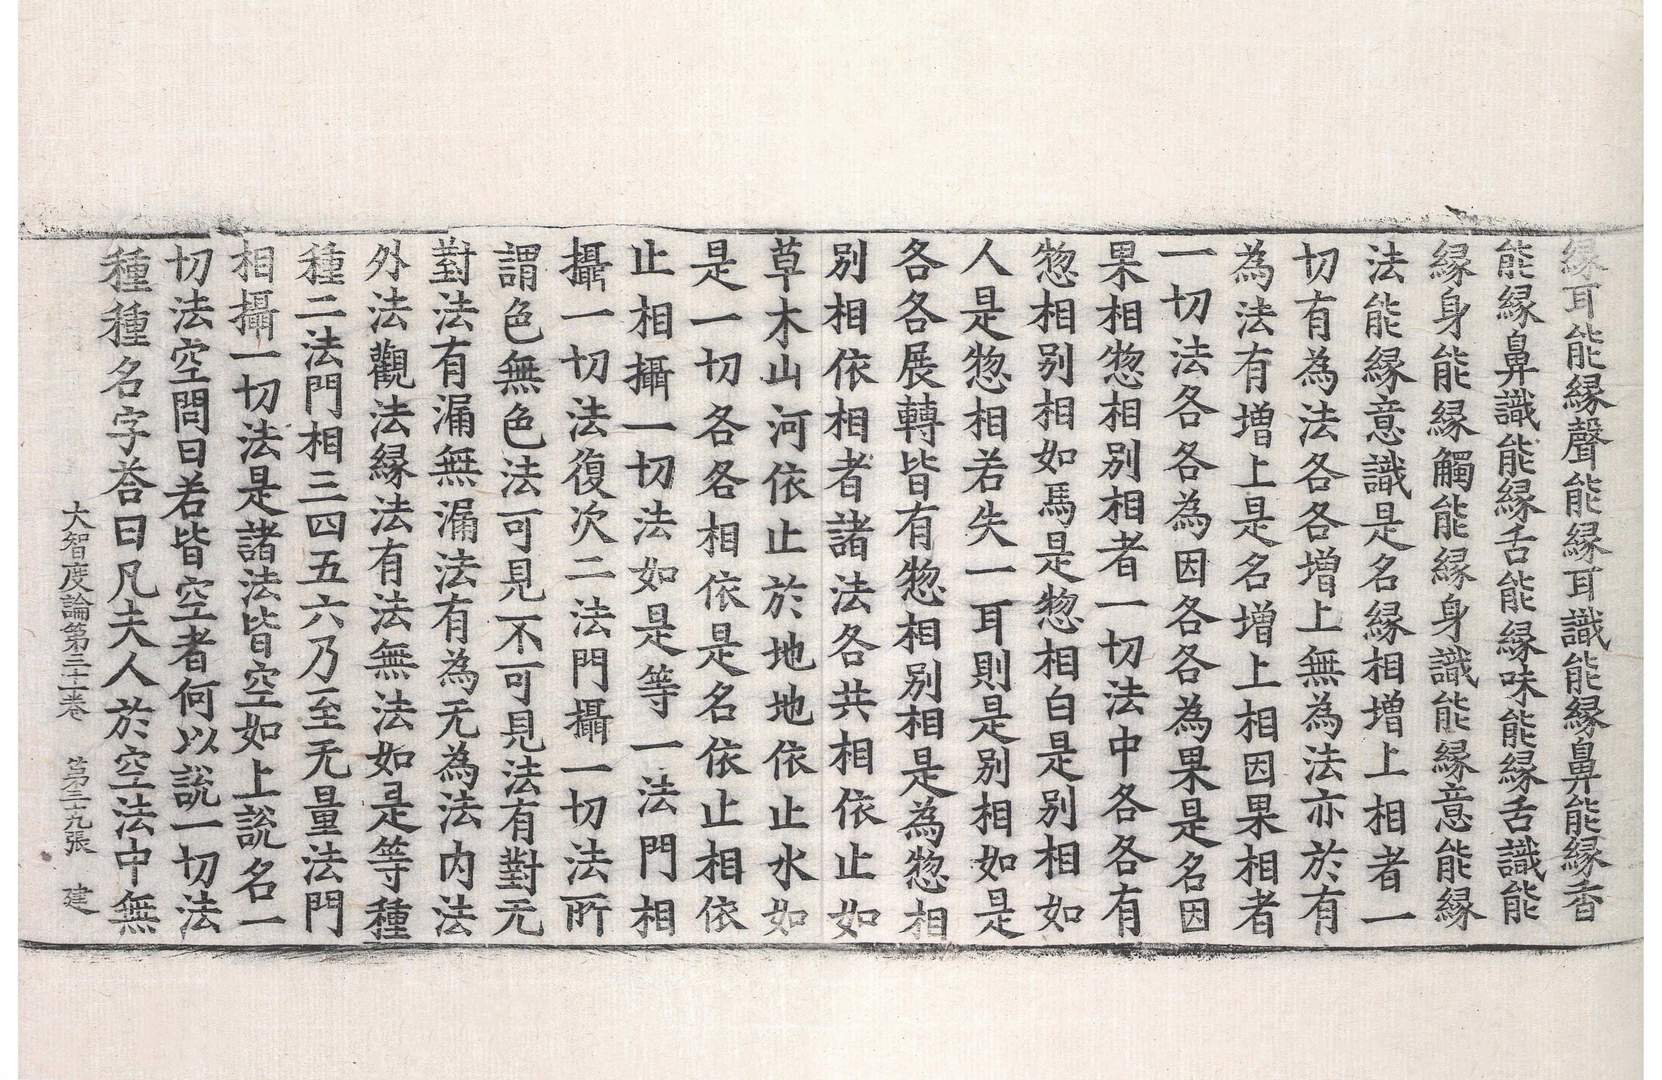 縁耳能縁聲能縁耳識能縁鼻能縁香
能縁鼻識能縁舌能縁味能縁舌識能
縁身能縁觸能縁身識能縁意能縁
法能縁意識是名縁相增上相者一
切有為法各各增上無為法亦於有
為法有增上是名增上相因果相者
一切法各各為因各各為果是名因
果相惣相別相者一切法中各各有
惣相別相如馬是惣相白是別相如
人是惣相若失一耳則是別相如是
各各展轉皆有惣相別相是為惣相
別相依相者諸法各共相依止如
草木山河依止於地地依止水如
是一切各各相依是名依止相依
止相攝一切法如是等一法門相
攝一切法復次二法門攝一切法所
謂色無色法可見不可見法有對无
對法有漏無漏法有為无為法内法
外法觀法縁法有法無法如是等種
種二法門相三四五六乃至无量法門
相攝一切法是諸法皆空如上說名一
切法空問曰若皆空者何以說一切法
種種名字荅曰凡夫人於空法中無
大智度論第三十一卷　第二十九張　建